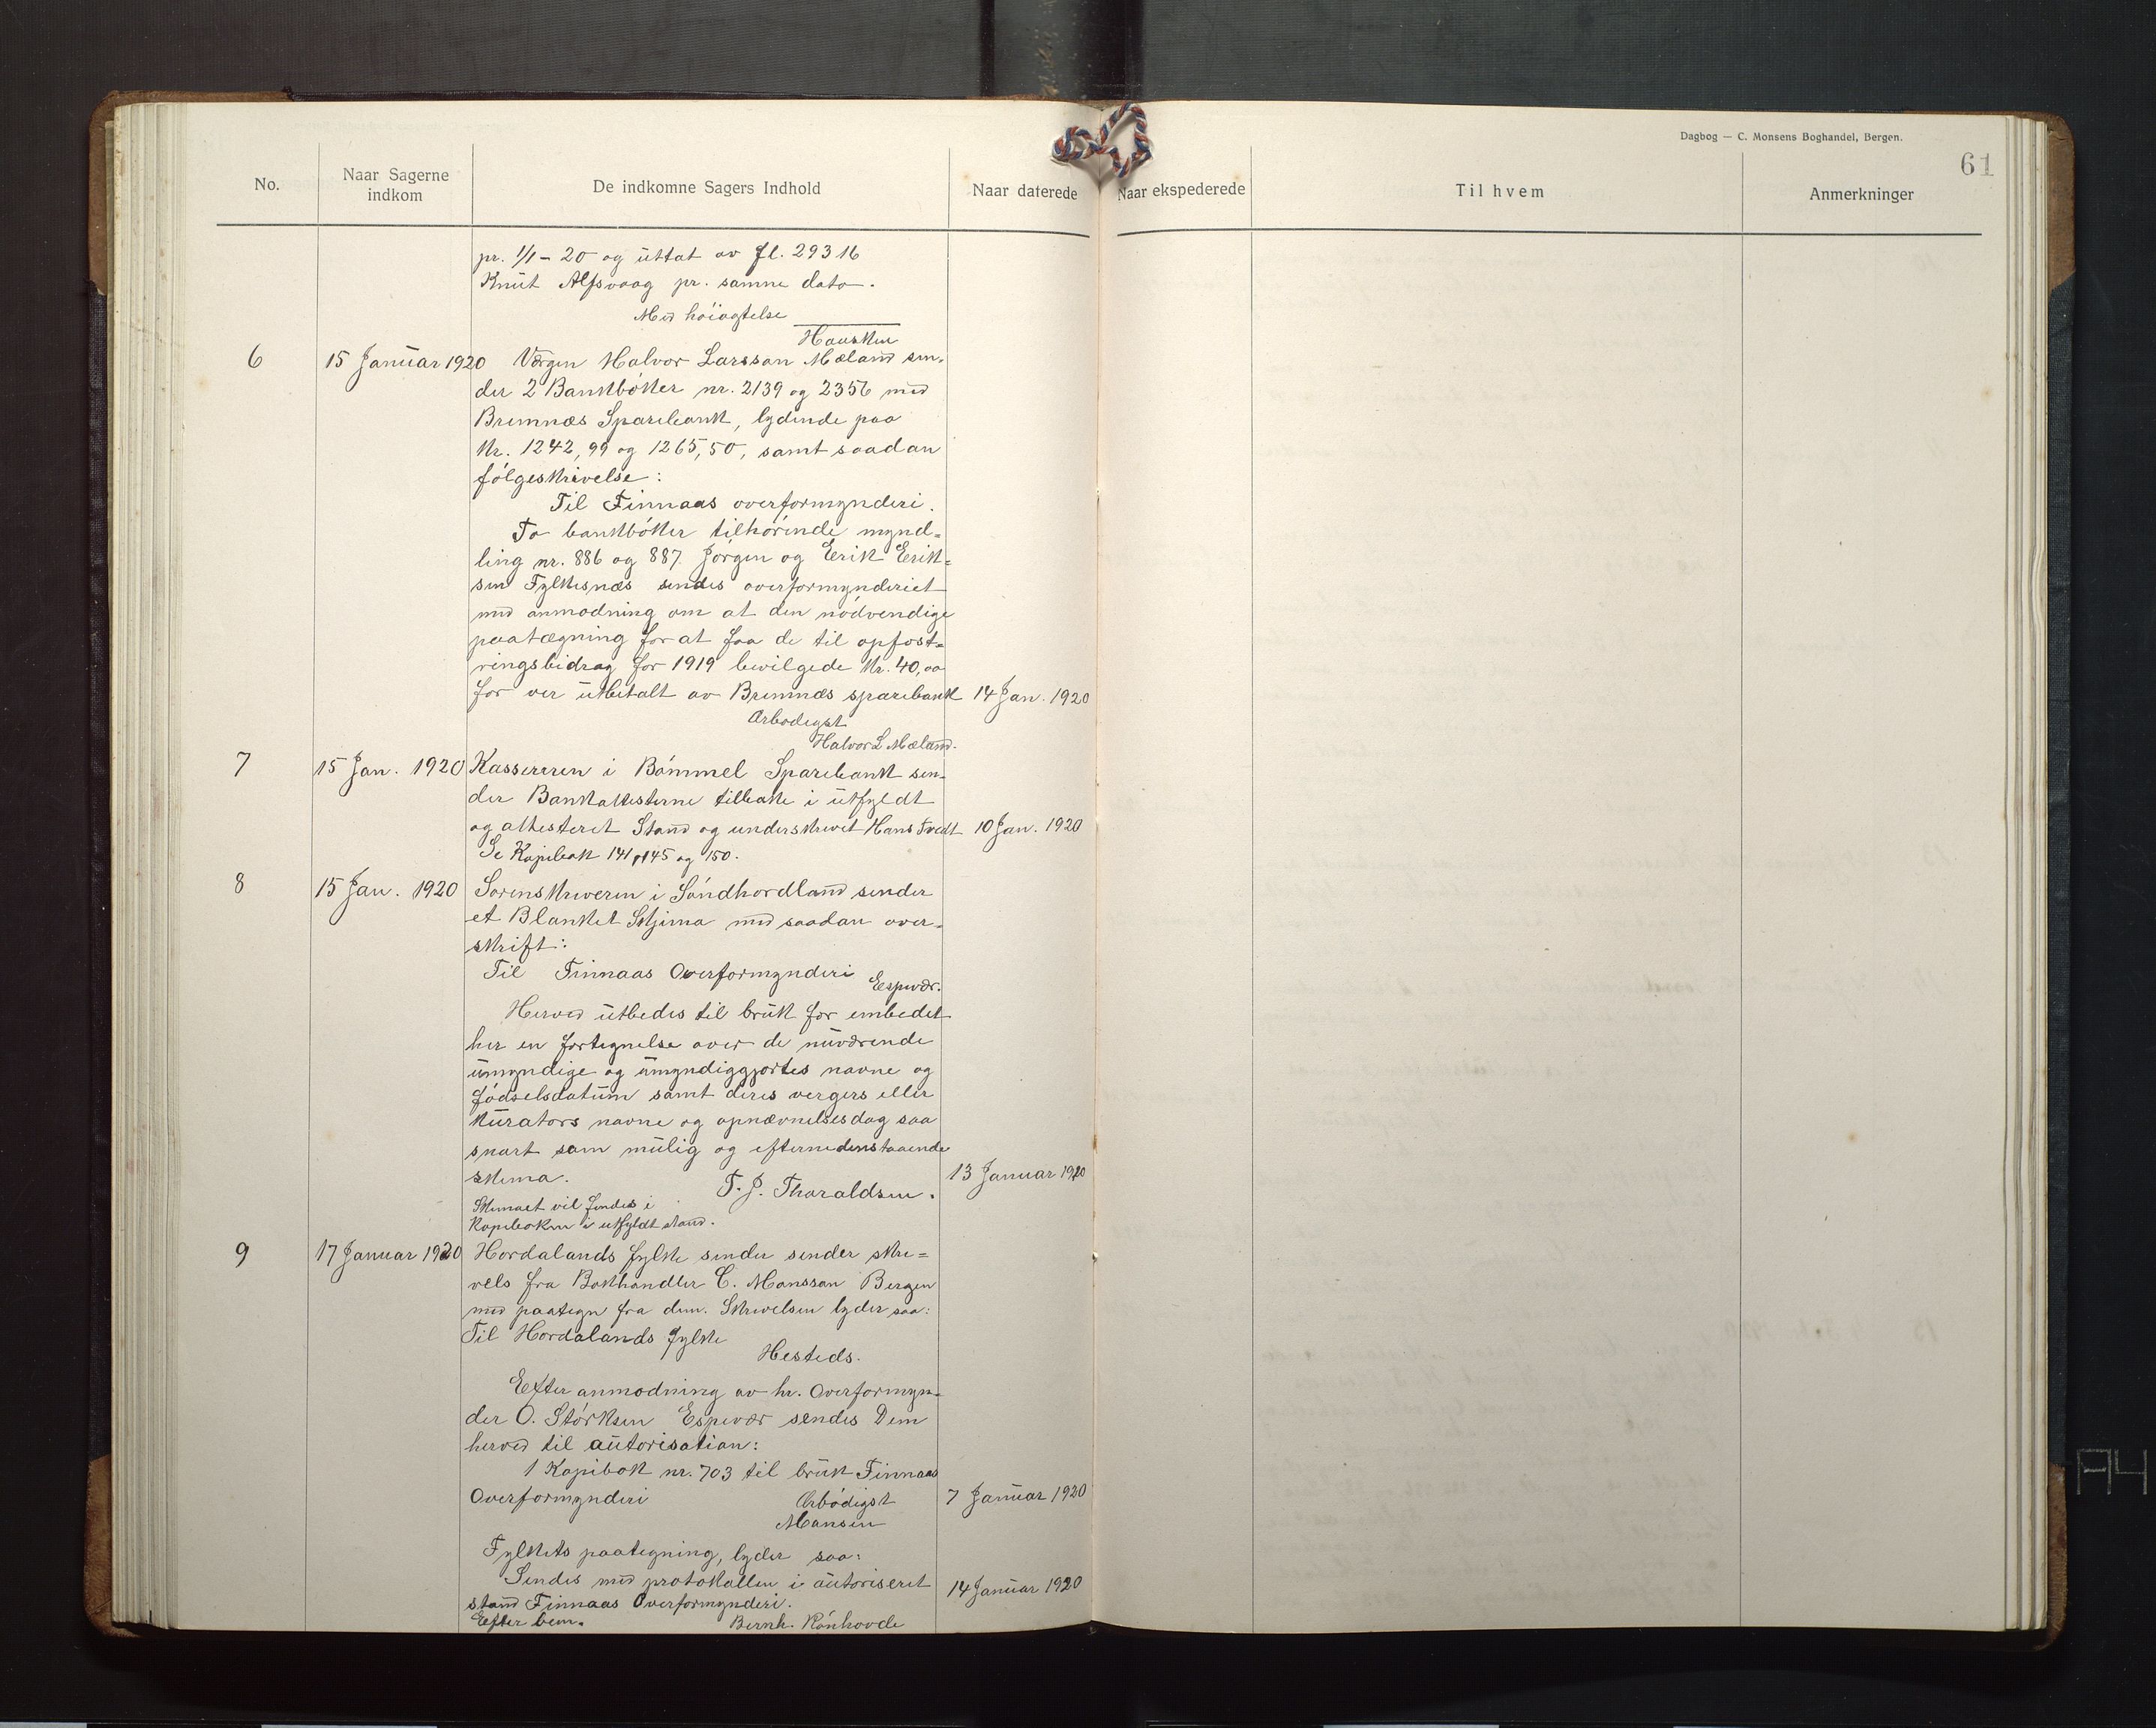 Dagbog — C. Monsens Boghandel, Bergen.
61
No.
Naar Sagerne
indkom
De indkomne Sagers Indhold
Naar daterede
Naar ekspederede
Til hvem
Anmerkninger
pr. 1/1 - 20 og uttat av fl. 293 16
Knut Alfsvaag pr. samme dato.
Med høiagtelse
Hausken
6 15 Januar 1920 Værgen Halvor Larsson Mæland sen-
der 2 Bankbøker nr. 2139 og 2356 med
Bremnæs Sparebank, lydende paa
kr. 1242,99 og 1265,50, samt saadan
følgeskrivelse:
Til Finnaas overformynderi.
To bankbøker tilhørende mynd-
ling nr. 886 og 887. Jørgen og Erik Erik-
sen Fylkesnæs sendes overformynderiet
med anmodning om at den nødvendige
paategning for at faa de til opfost-
ringsbidrag for 1919 bevilgede kr. 40,00
for ver utbetalt av Bremnæs sparebank 14 Jan. 1920
Ærbødigst
Halvor L Mæland.
7 15 Jan. 1920 Kassereren i Bømmel Sparebank sen-
der Bankattesterne tilbake i utfyldt
og attesteret Stand og underskrevet Hans Tvedt 10 Jan. 1920
Se Kopibok 141, 145 og 150.
8 15 Jan. 1920 Sorenskriveren i Søndhordland sender
et Blanket Skjema med saadan over-
skrift:
Til Finnaas Overformynderi
Espevær.
Herved utbedes til bruk for embedet
her en fortegnelse over de nuværende
umyndige og umyndiggjortes navne og
fødselsdatum samt deres vergers eller
kurators navne og opnævnelsesdag saa
snart som mulig og efter nedenstaaende
skema.
T. J. Thoraldsen. 13 Januar 1920
Skemaet vil findes i
Kopiboken i utfyldt stand.
9 17 Januar 1920 Hordalands fylke sender sender skri-
vels fra Bokhandler C. Monsson Bergen
med paategn fra den. Skrivelsen lyder saa:
Til Hordalands fylke
Hesteds.
Efter anmodning av hr. Overformyn-
der O. Størksen Espevær sendes Dem
herved til autorisation:
1 Kopibok nr. 703 til bruk Finnaas
Overformynderi Ærbødigst 7 Januar 1920
Monsen
Fylkets paategning, lyder saa:
Sendes med protokollen i autoriseret 14 Januar 1920
stand Finnaas Overformynderi.
Efter bem. Bernh. Rønhovde